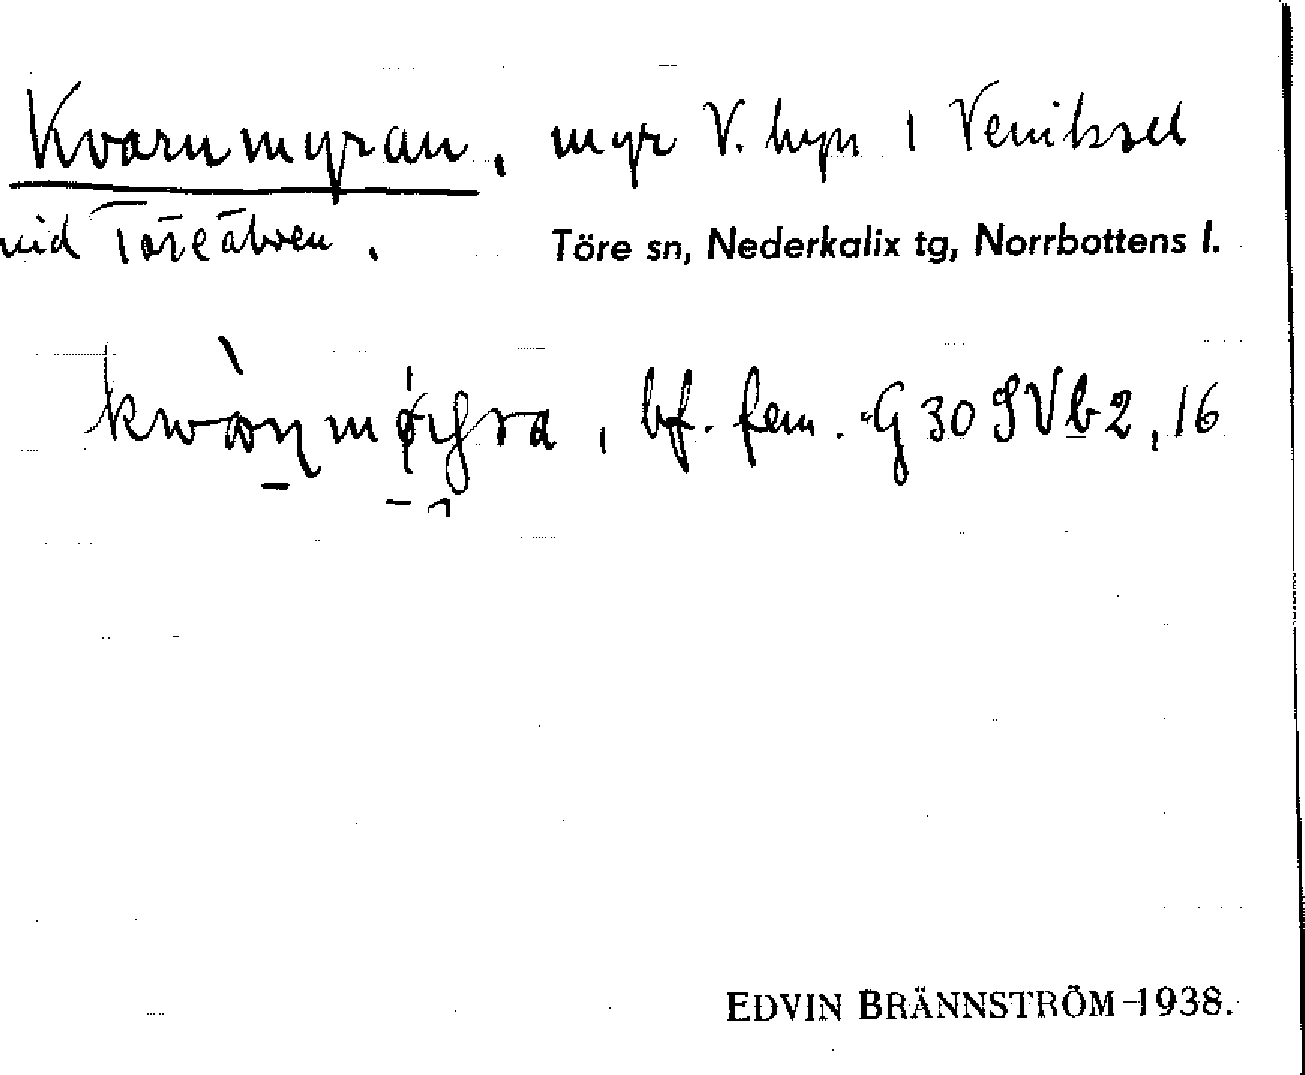 Kvarnmyran, myr V. byn i Veniksel
vid Töreälven.
Töre sn, Nederkalix tg, Norrbottens l.
bf. fem. G 30 S V b 2, 16
EDVIN BRÄNNSTRÖM -1938.